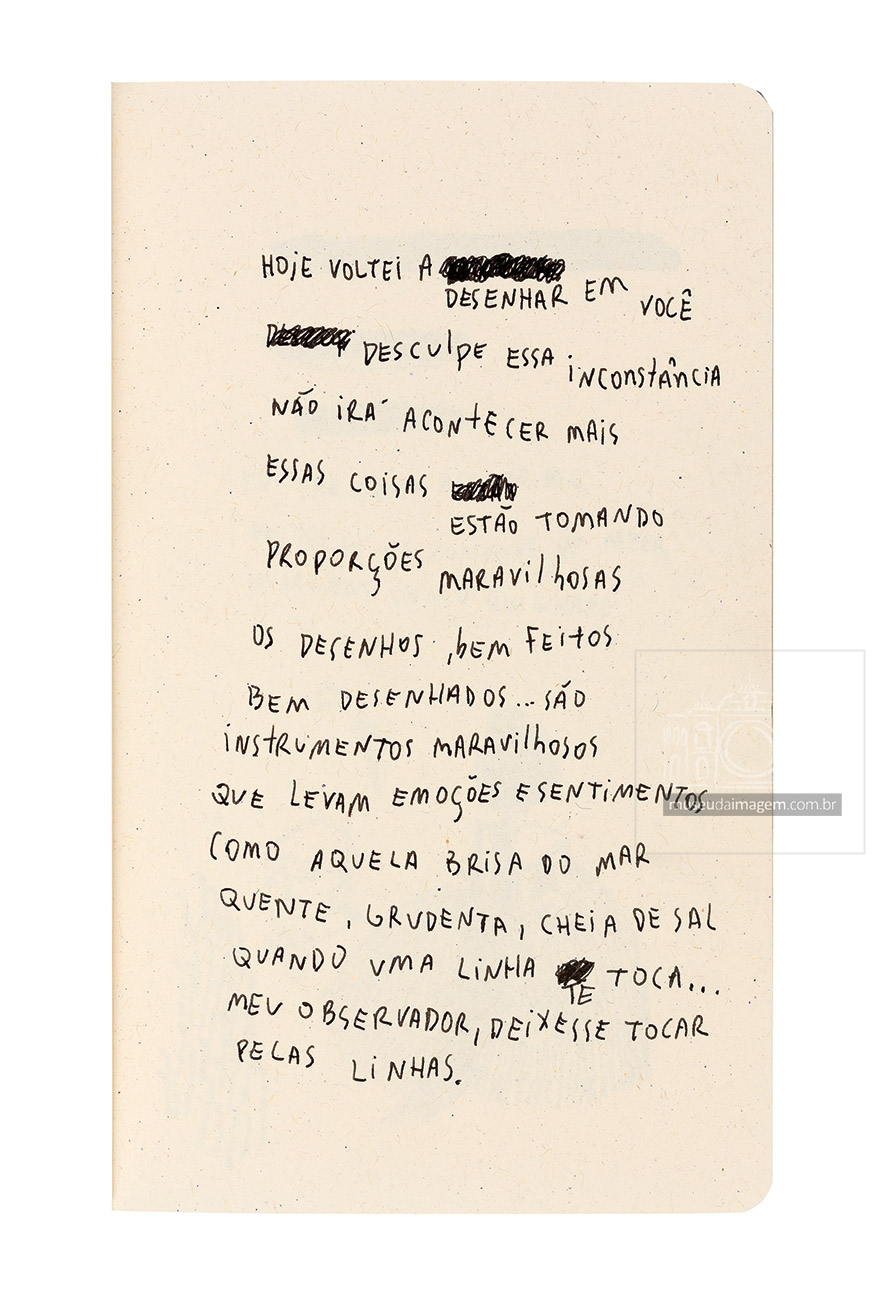 HOJE VOLTEI A
DESENHAR EM VOCÊ
DESCULPE ESSA INCONSTÂNCIA
NÃO IRÁ ACONTECER MAIS
ESSAS COISAS
ESTÃO TOMANDO
PROPORÇÕES MARAVILHOSAS
OS DESENHOS, BEM FEITOS
BEM DESENHADOS... SÃO
INSTRUMENTOS MARAVILHOSOS
QUE LEVAM EMOÇÕES E SENTIMENTOS
museudaimagem.com.br
COMO AQUELA BRISA DO MAR
QUENTE, GRUDENTA, CHEIA DE SAL
QUANDO UMA LINHA TE TOCA...
MEU OBSERVADOR, DEIXESSE TOCAR
PELAS LINHAS.